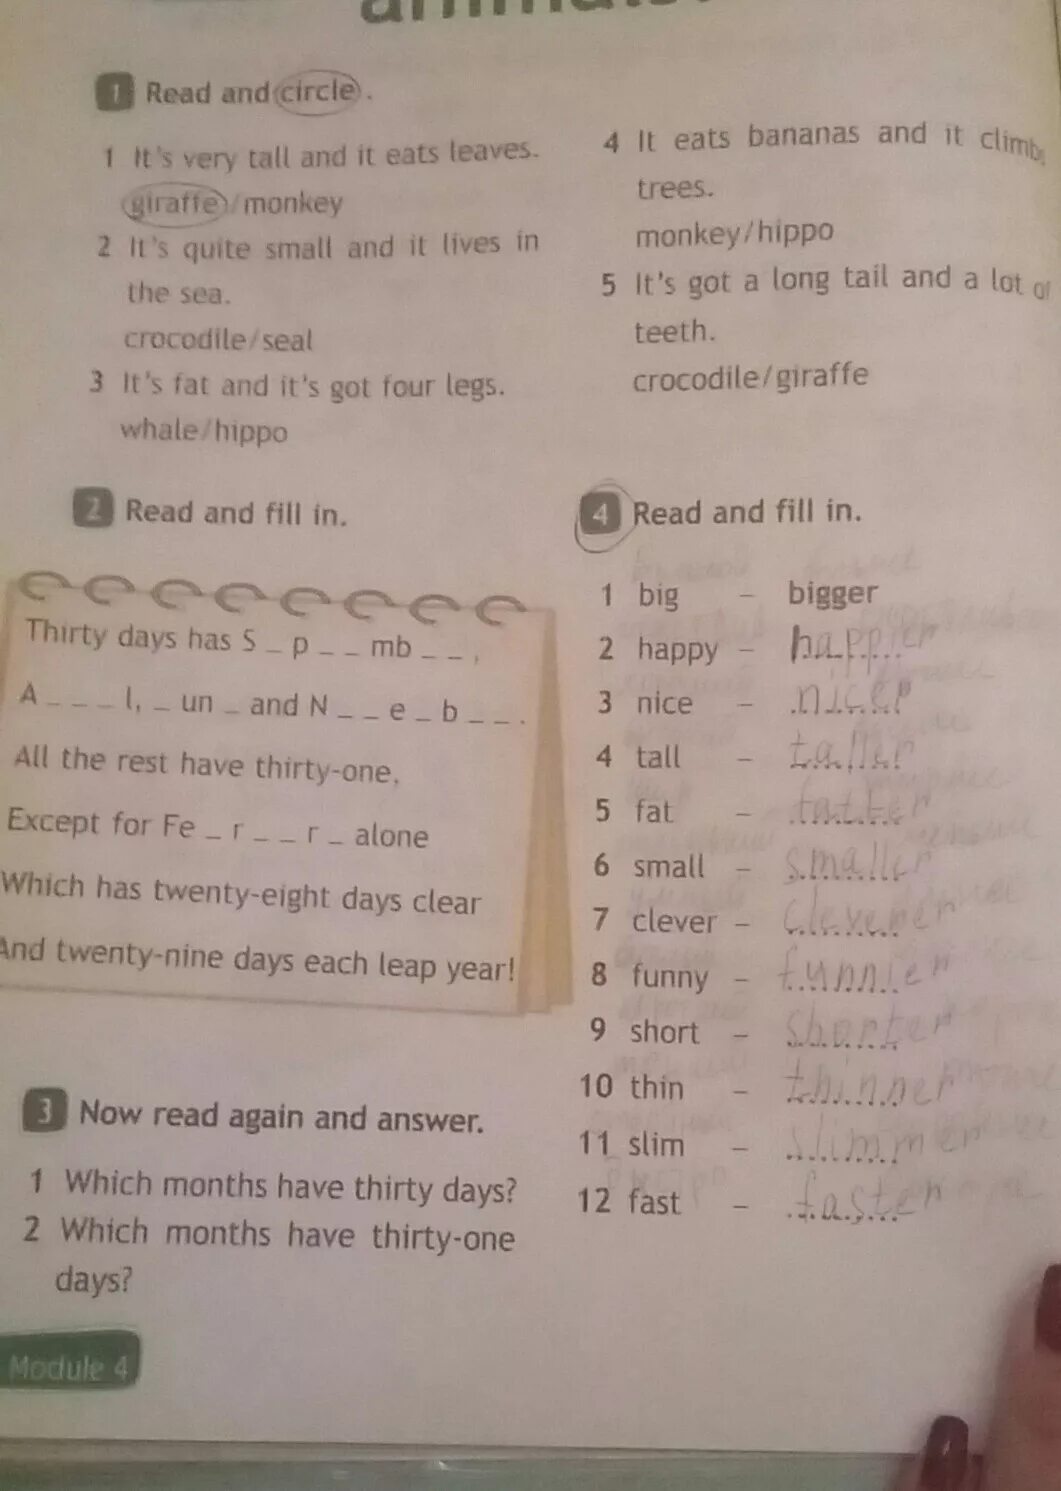 animals.
1 Read and circle.
1 It's very tall and it eats leaves.
giraffe/monkey
2 It's quite small and it lives in
the sea.
crocodile/seal
3 It's fat and it's got four legs.
whale/hippo
4 It eats bananas and it climbs
trees.
monkey/hippo
5 It's got a long tail and a lot of
teeth.
crocodile/giraffe
2 Read and fill in.
Thirty days has S _ p _ _ mb _ _ ,
A _ _ _ l, _ un _ and N _ _ e _ b _ _ .
All the rest have thirty-one,
Except for Fe _ r _ _ r _ alone
Which has twenty-eight days clear
And twenty-nine days each leap year!
3 Now read again and answer.
1 Which months have thirty days?
2 Which months have thirty-one
days?
4 Read and fill in.
1 big – bigger
2 happy – happier
3 nice – nicer
4 tall – taller
5 fat – fatter
6 small – smaller
7 clever – cleverer
8 funny – funnier
9 short – shorter
10 thin – thinner
11 slim – slimmer
12 fast – faster
Module 4